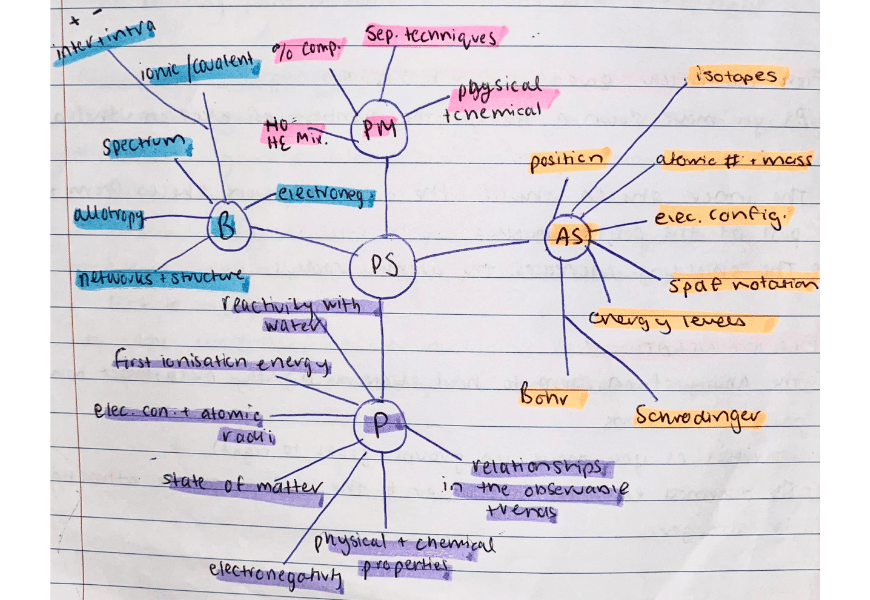 + -
inter+intra
ionic/covalent
spectrum
allotropy
networks + structure
electroneg.
B
% comp.
Sep. techniques
physical
+chemical
HO =
HE Mix.
PM
PS
isotopes
position
atomic # + mass
elec. config.
spdf notation
energy levels
AS
Bohr
Schrodinger
reactivity with
water
first ionisation energy
elec. con. + atomic
radii
state of matter
electronegativity
physical + chemical
properties
relationships
in the observable
trends
P